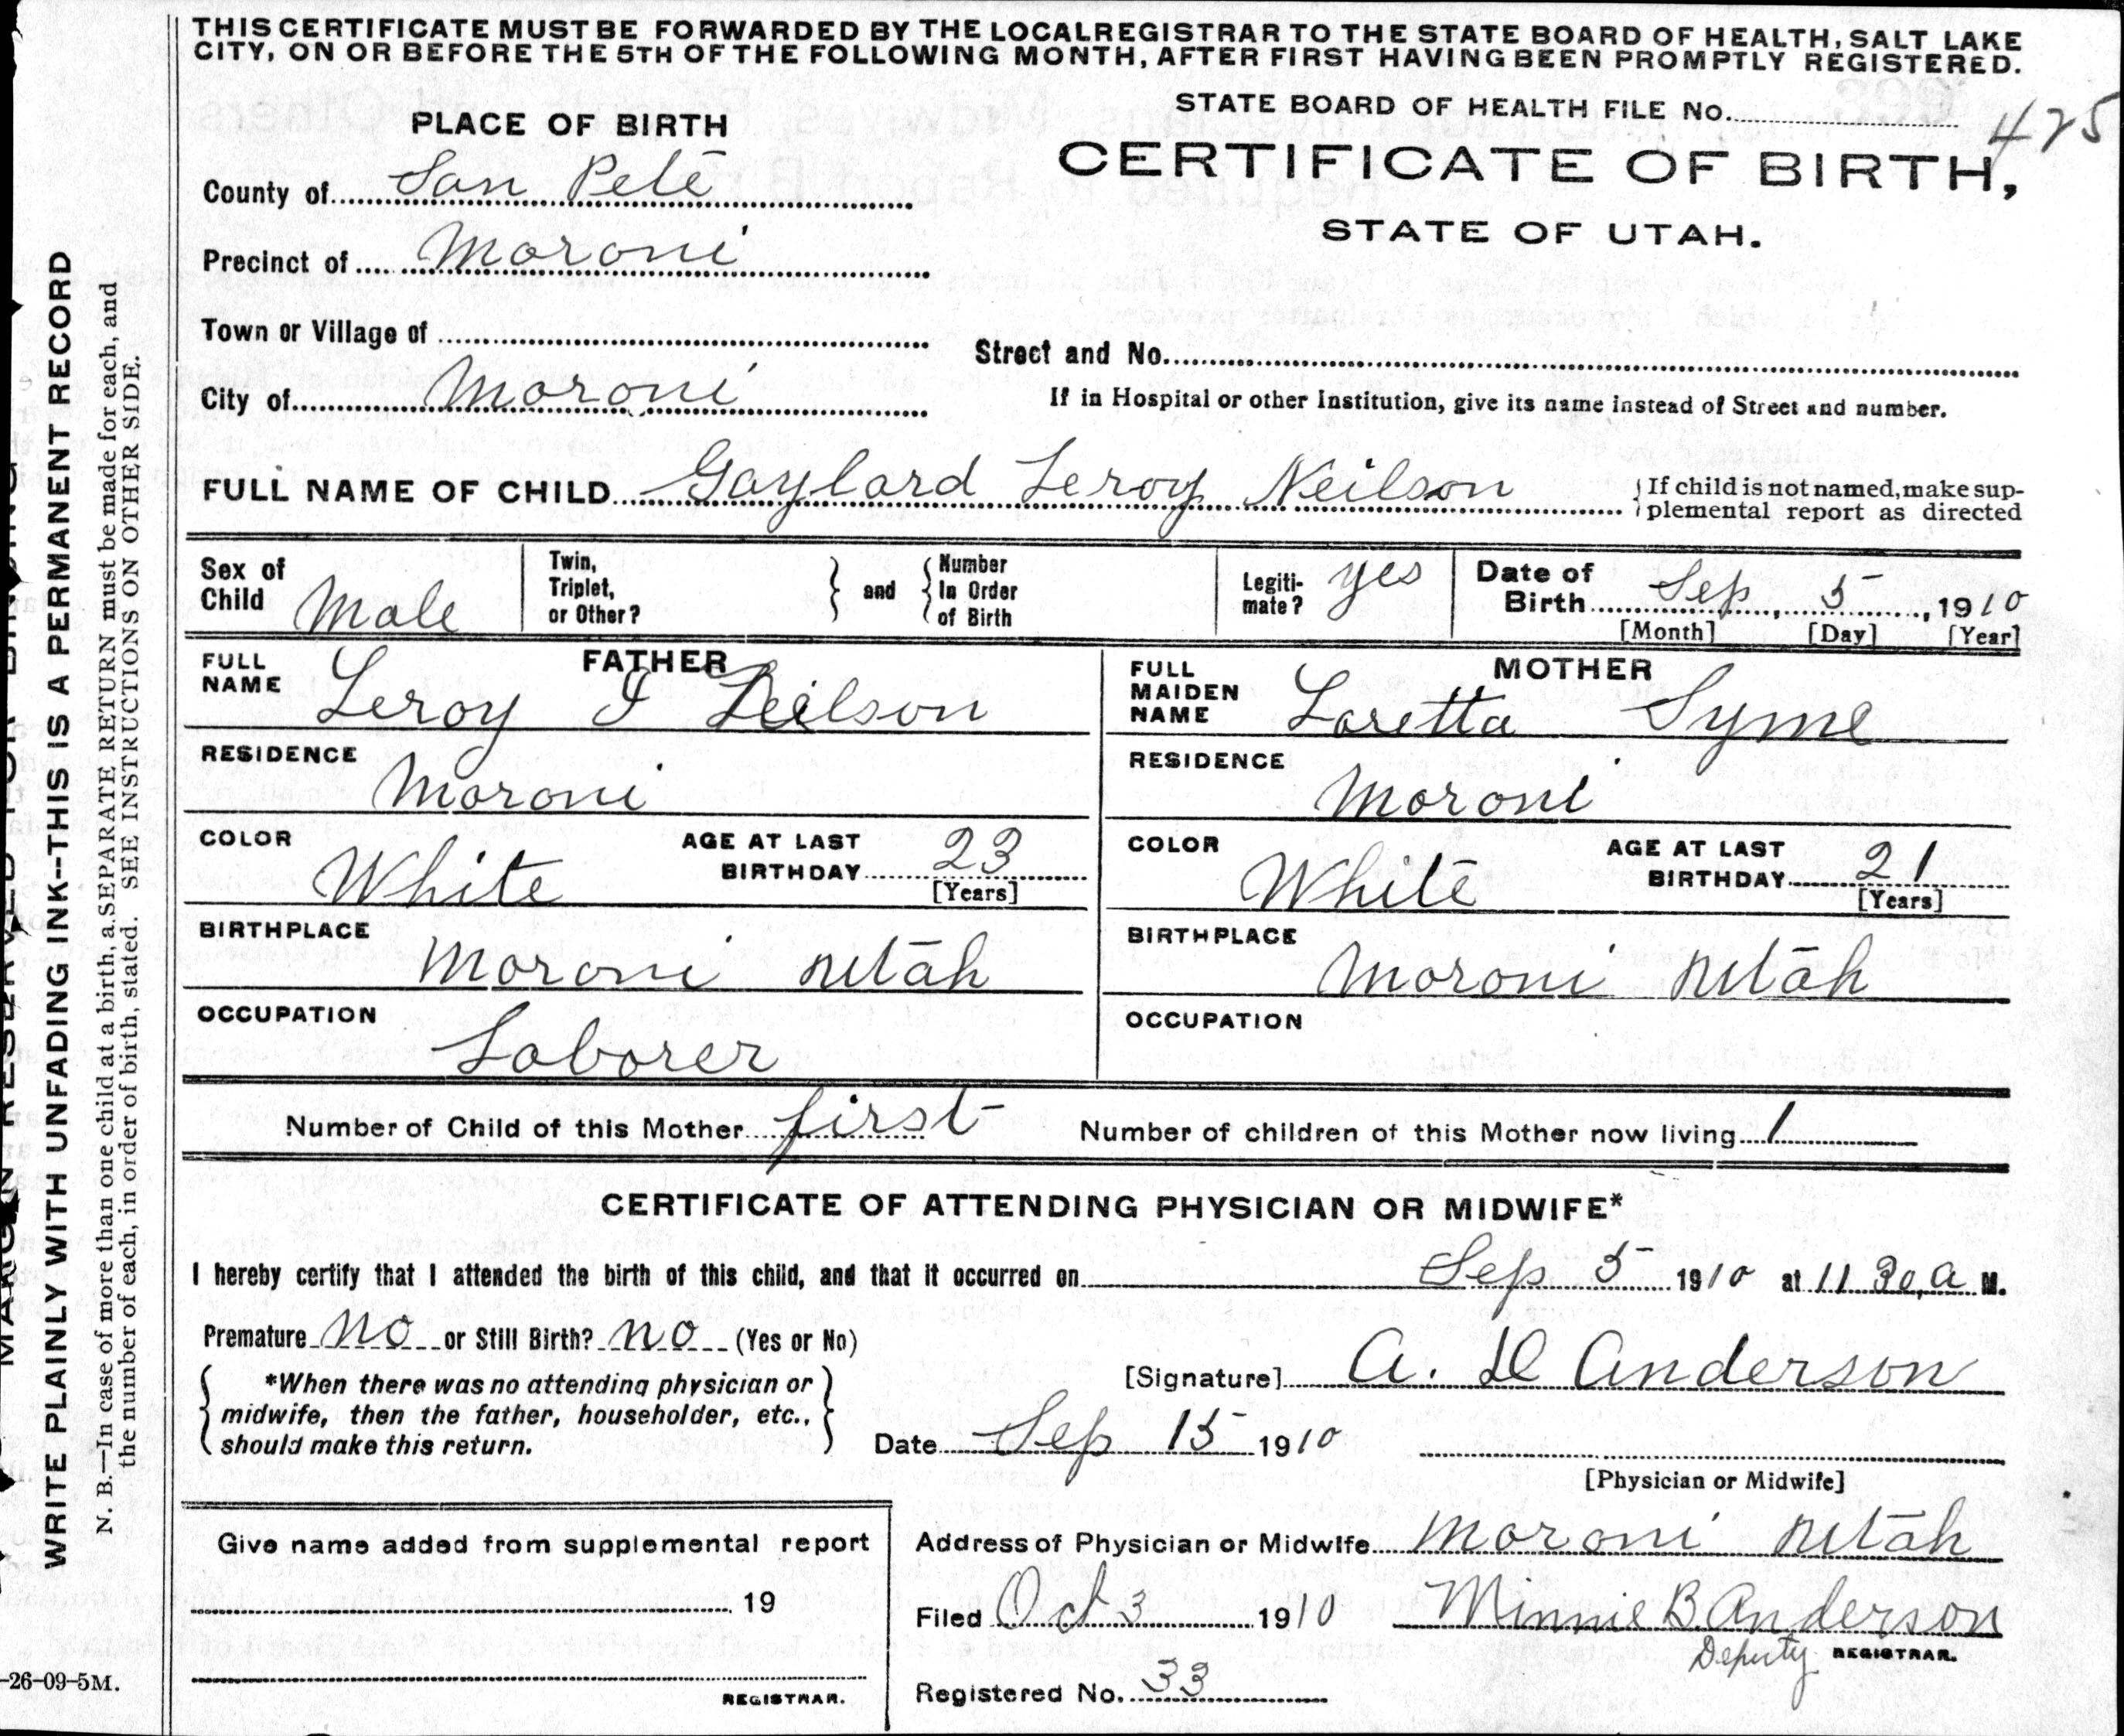 THIS CERTIFICATE MUST BE FORWARDED BY THE LOCAL REGISTRAR TO THE STATE BOARD OF HEALTH, SALT LAKE
CITY, ON OR BEFORE THE 5TH OF THE FOLLOWING MONTH, AFTER FIRST HAVING BEEN PROMPTLY REGISTERED.
STATE BOARD OF HEALTH FILE No. 425
PLACE OF BIRTH
CERTIFICATE OF BIRTH,
STATE OF UTAH.
County of San Pete
Precinct of Moroni
Town or Village of
Street and No.
City of Moroni
If in Hospital or other Institution, give its name instead of Street and number.
FULL NAME OF CHILD Gaylard Leroy Neilson
If child is not named, make sup-
plemental report as directed
Sex of Child Male
Twin, Triplet, or Other?
and
Number In Order of Birth
Legiti-mate? yes
Date of Birth Sep 5, 1910
[Month] [Day] [Year]
FATHER
FULL NAME Leroy I Neilson
RESIDENCE
Moroni
COLOR White
AGE AT LAST BIRTHDAY 23
[Years]
BIRTHPLACE
Moroni Utah
OCCUPATION
Laborer
MOTHER
FULL MAIDEN NAME Loretta Syme
RESIDENCE
Moroni
COLOR White
AGE AT LAST BIRTHDAY 21
[Years]
BIRTHPLACE
Moroni Utah
OCCUPATION
Number of Child of this Mother first
Number of children of this Mother now living 1
CERTIFICATE OF ATTENDING PHYSICIAN OR MIDWIFE*
I hereby certify that I attended the birth of this child, and that it occurred on Sep 5 1910 at 11 30 a M.
Premature no or Still Birth? no (Yes or No)
*When there was no attending physician or
midwife, then the father, householder, etc.,
should make this return.
[Signature] A. D Anderson
Date Sep 15 1910
[Physician or Midwife]
Give name added from supplemental report
19
REGISTRAR.
Address of Physician or Midwife Moroni Utah
Filed Oct 3 1910 Minnie B. Anderson
Deputy REGISTRAR.
Registered No. 33
WRITE PLAINLY WITH UNFADING INK--THIS IS A PERMANENT RECORD
N. B.—In case of more than one child at a birth, a SEPARATE RETURN must be made for each, and
the number of each, in order of birth, stated. SEE INSTRUCTIONS ON OTHER SIDE.
-26-09-5M.